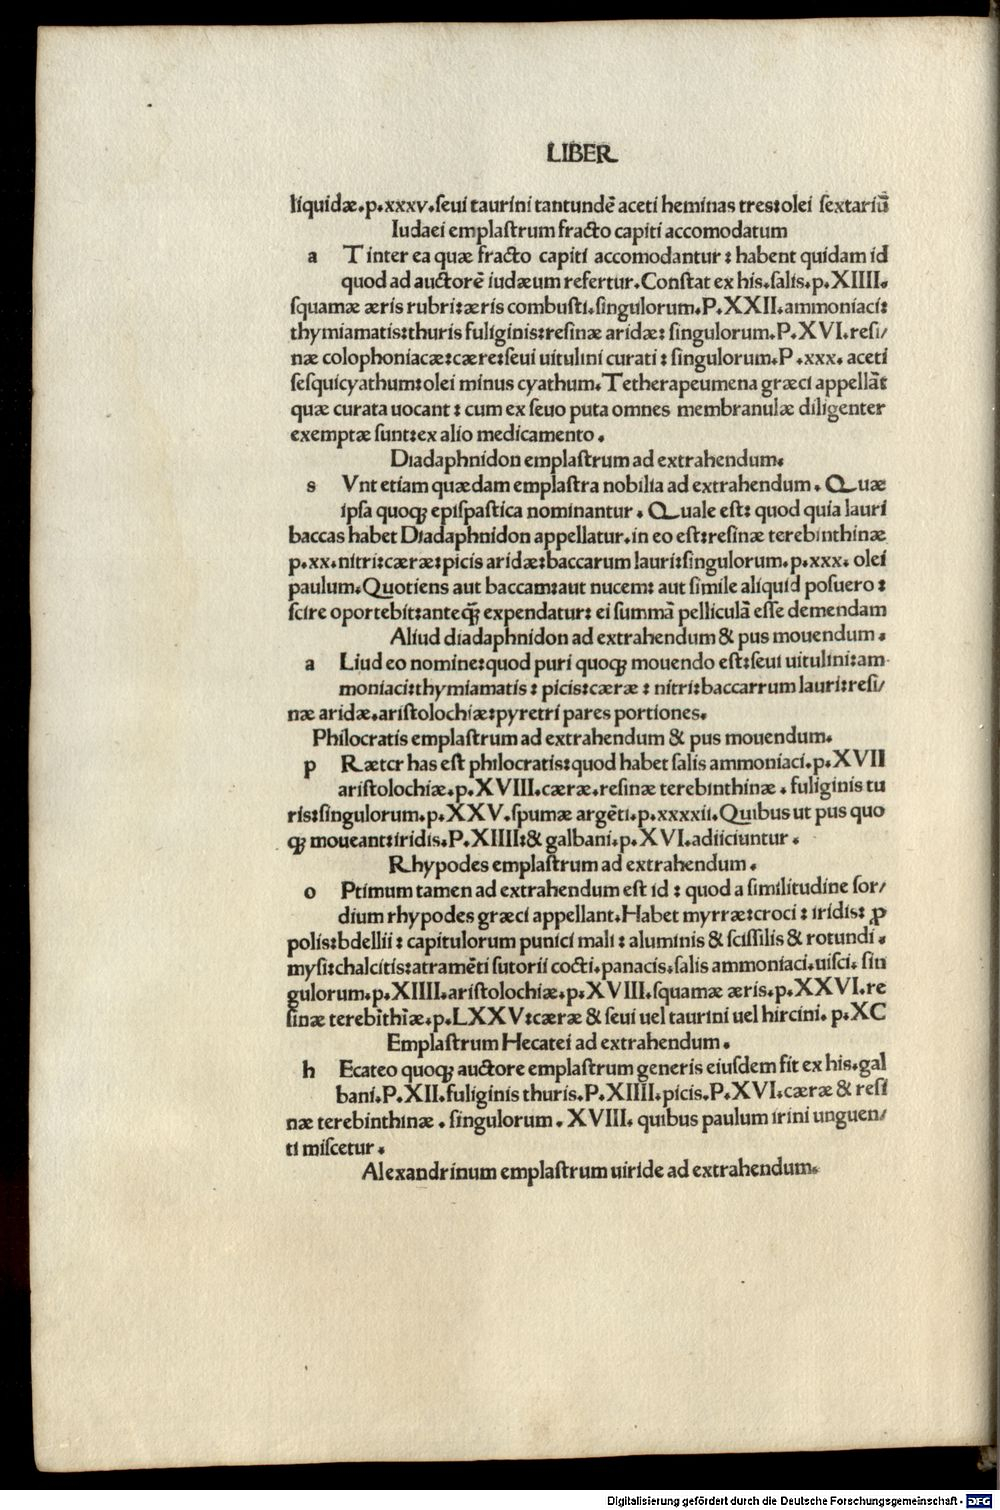 LIBER
liquidæ.p.xxxv.ſeui taurini tantundē aceti heminas tres:olei ſextariū
Iudaei emplaſtrum fracto capiti accomodatum
a T inter ea quæ fracto capiti accomodantur : habent quidam id
quod ad auctorē iudæum refertur.Conſtat ex his.ſalis.p.XIIII.
ſquamæ æris rubri:æris combuſti.ſingulorum.P.XXII.ammoniaci:
thymiamatis:thuris fuliginis:reſinæ aridæ: ſingulorum.P.XVI.reſi/
næ colophoniacæ:cære:ſeui uitulini curati : ſingulorum.P.xxx. aceti
ſeſquicyathum:olei minus cyathum.Tetherapeumena græci appellāt
quæ curata uocant : cum ex ſeuo puta omnes membranulæ diligenter
exemptæ ſunt:ex alio medicamento.
Diadaphnidon emplaſtrum ad extrahendum.
s Vnt etiam quædam emplaſtra nobilia ad extrahendum. Quæ
ipſa quoqꝫ epiſpaſtica nominantur. Quale eſt: quod quia lauri
baccas habet Diadaphnidon appellatur.in eo eſt:reſinæ terebinthinæ
p.xx.nitri:cæræ:picis aridæ:baccarum lauri:ſingulorum.p.xxx. olei
paulum.Quotiens aut baccam:aut nucem: aut ſimile aliquid poſuero :
ſcire oportebit:anteq̄ꝫ expendatur: ei ſummā pelliculā eſſe demendam
Aliud diadaphnidon ad extrahendum & pus mouendum.
a Liud eo nomine:quod puri quoqꝫ mouendo eſt:ſeui uitulini:am-
moniaci:thymiamatis : picis:cæræ : nitri:baccarrum lauri:reſi/
næ aridæ.ariſtolochiæ:pyretri pares portiones.
Philocratis emplaſtrum ad extrahendum & pus mouendum.
p Rætcr has eſt philocratis:quod habet ſalis ammoniaci.p.XVII
ariſtolochiæ.p.XVIII.cæræ.reſinæ terebinthinæ. fuliginis tu
ris:ſingulorum.p.XXV.ſpumæ argēti.p.xxxxii.Quibus ut pus quo
qꝫ moueant:iridis.P.XIIII:& galbani.p.XVI.adiiciuntur.
Rhypodes emplaſtrum ad extrahendum.
o Ptimum tamen ad extrahendum eſt id : quod a ſimilitudine ſor/
dium rhypodes græci appellant.Habet myrræ:croci : iridis: ꝓ
polis:bdellii : capitulorum punici mali : aluminis & ſciſſilis & rotundi.
myſi:chalcitis:atramēti ſutorii cocti.panacis.ſalis ammoniaci.uiſci. ſin
gulorum.p.XIIII.ariſtolochiæ.p.XVIII.ſquamæ æris.p.XXVI.re
ſinæ terebīthīæ.p.LXXV:cæræ & ſeui uel taurini uel hircini. p.XC
Emplaſtrum Hecatei ad extrahendum.
h Ecateo quoqꝫ auctore emplaſtrum generis eiuſdem fit ex his.gal
bani.P.XII.fuliginis thuris.P.XIIII.picis.P.XVI.cæræ & reſi
næ terebinthinæ. ſingulorum. XVIII. quibus paulum irini unguen/
ti miſcetur.
Alexandrinum emplaſtrum uiride ad extrahendum.
Digitalisierung gefördert durch die Deutsche Forschungsgemeinschaft - DFG